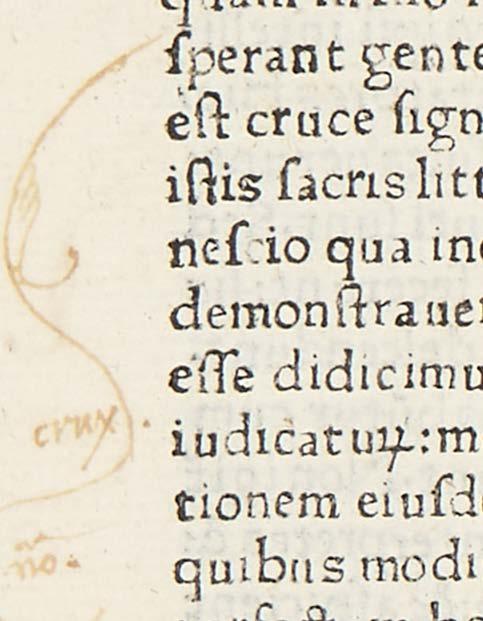 ſperant gente
eſt cruce ſign
iſtis ſacris litt
neſcio qua in
demonſtraue
eſſe didicimu
crux
iudicatuꝝ: m
tionem eiuſd
ño.
quibus modi